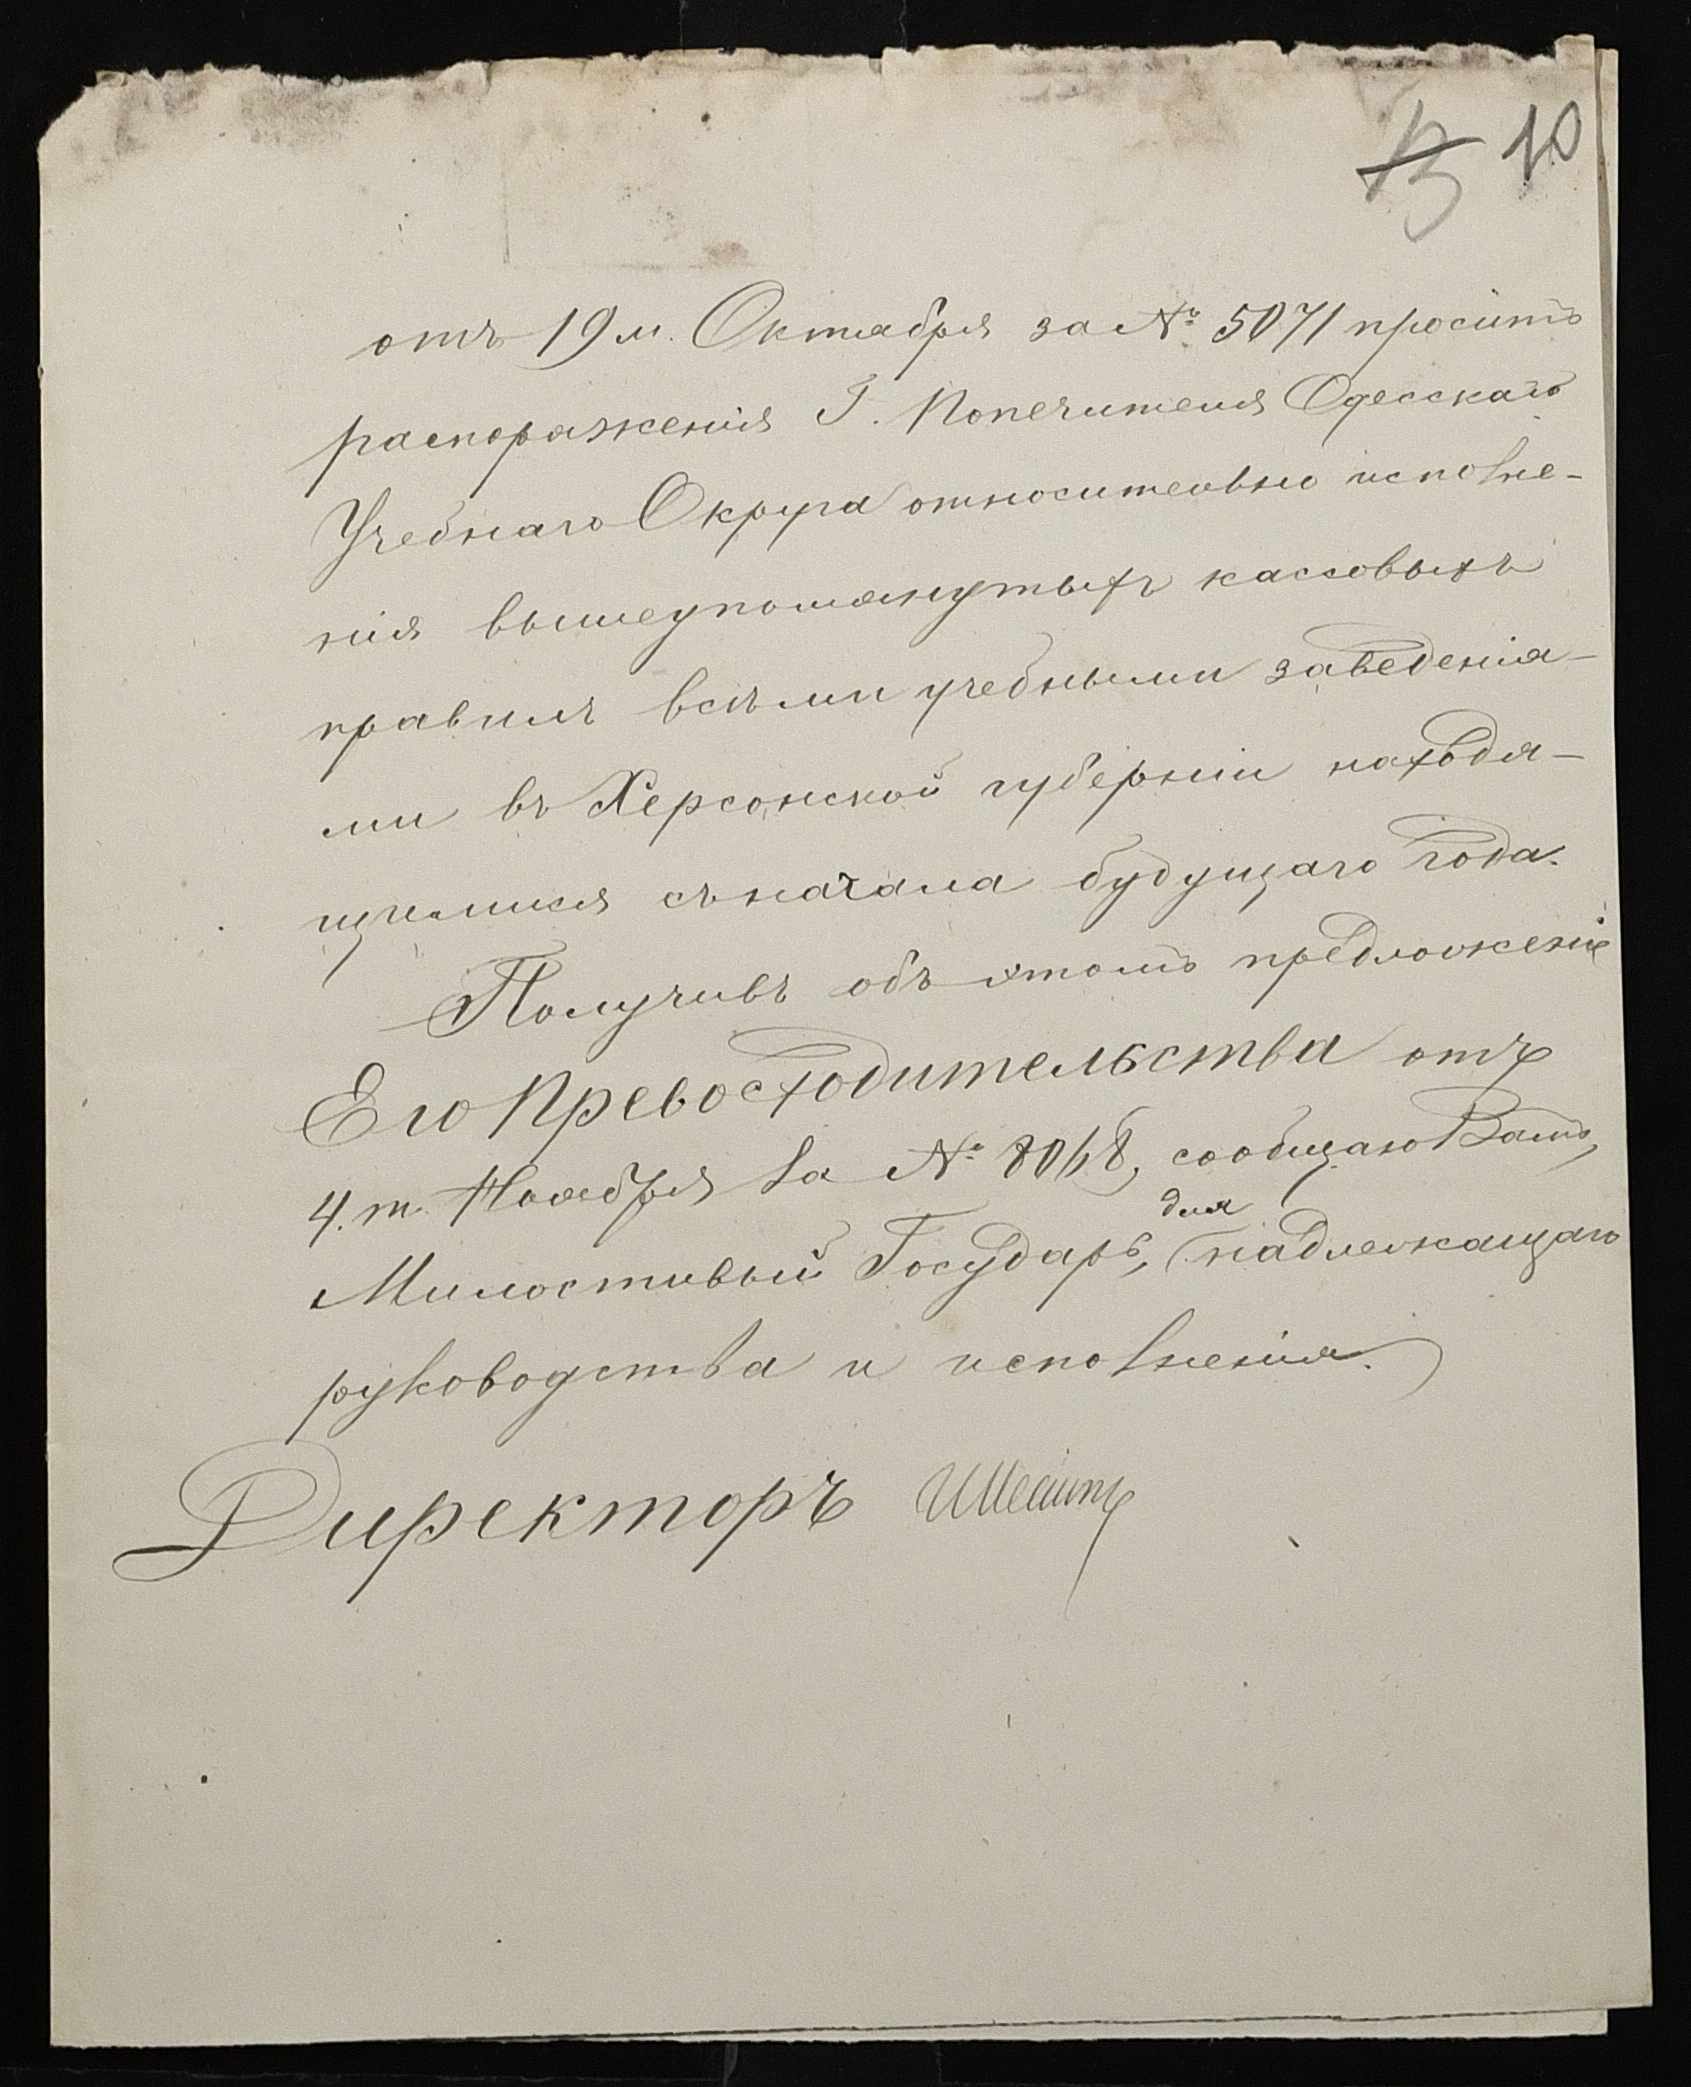 10
отъ 19 м. Октября за № 5071 проситъ
распоряженія Г. Попечителя Одесскаго
Учебнаго Округа относительно исполне-
нія вышеупомянутыхъ кассовыхъ
правилъ всѣми учебными заведенія-
ми въ Херсонской губерніи находя-
щимися съ начала будущаго года.
Получивъ объ этомъ предложеніе
Его Превосходительства отъ
4. т. Ноября за № 8068, сообщаю Вамъ,
Милостивый Государь, для надлежащаго
руководства и исполненія.
Директоръ